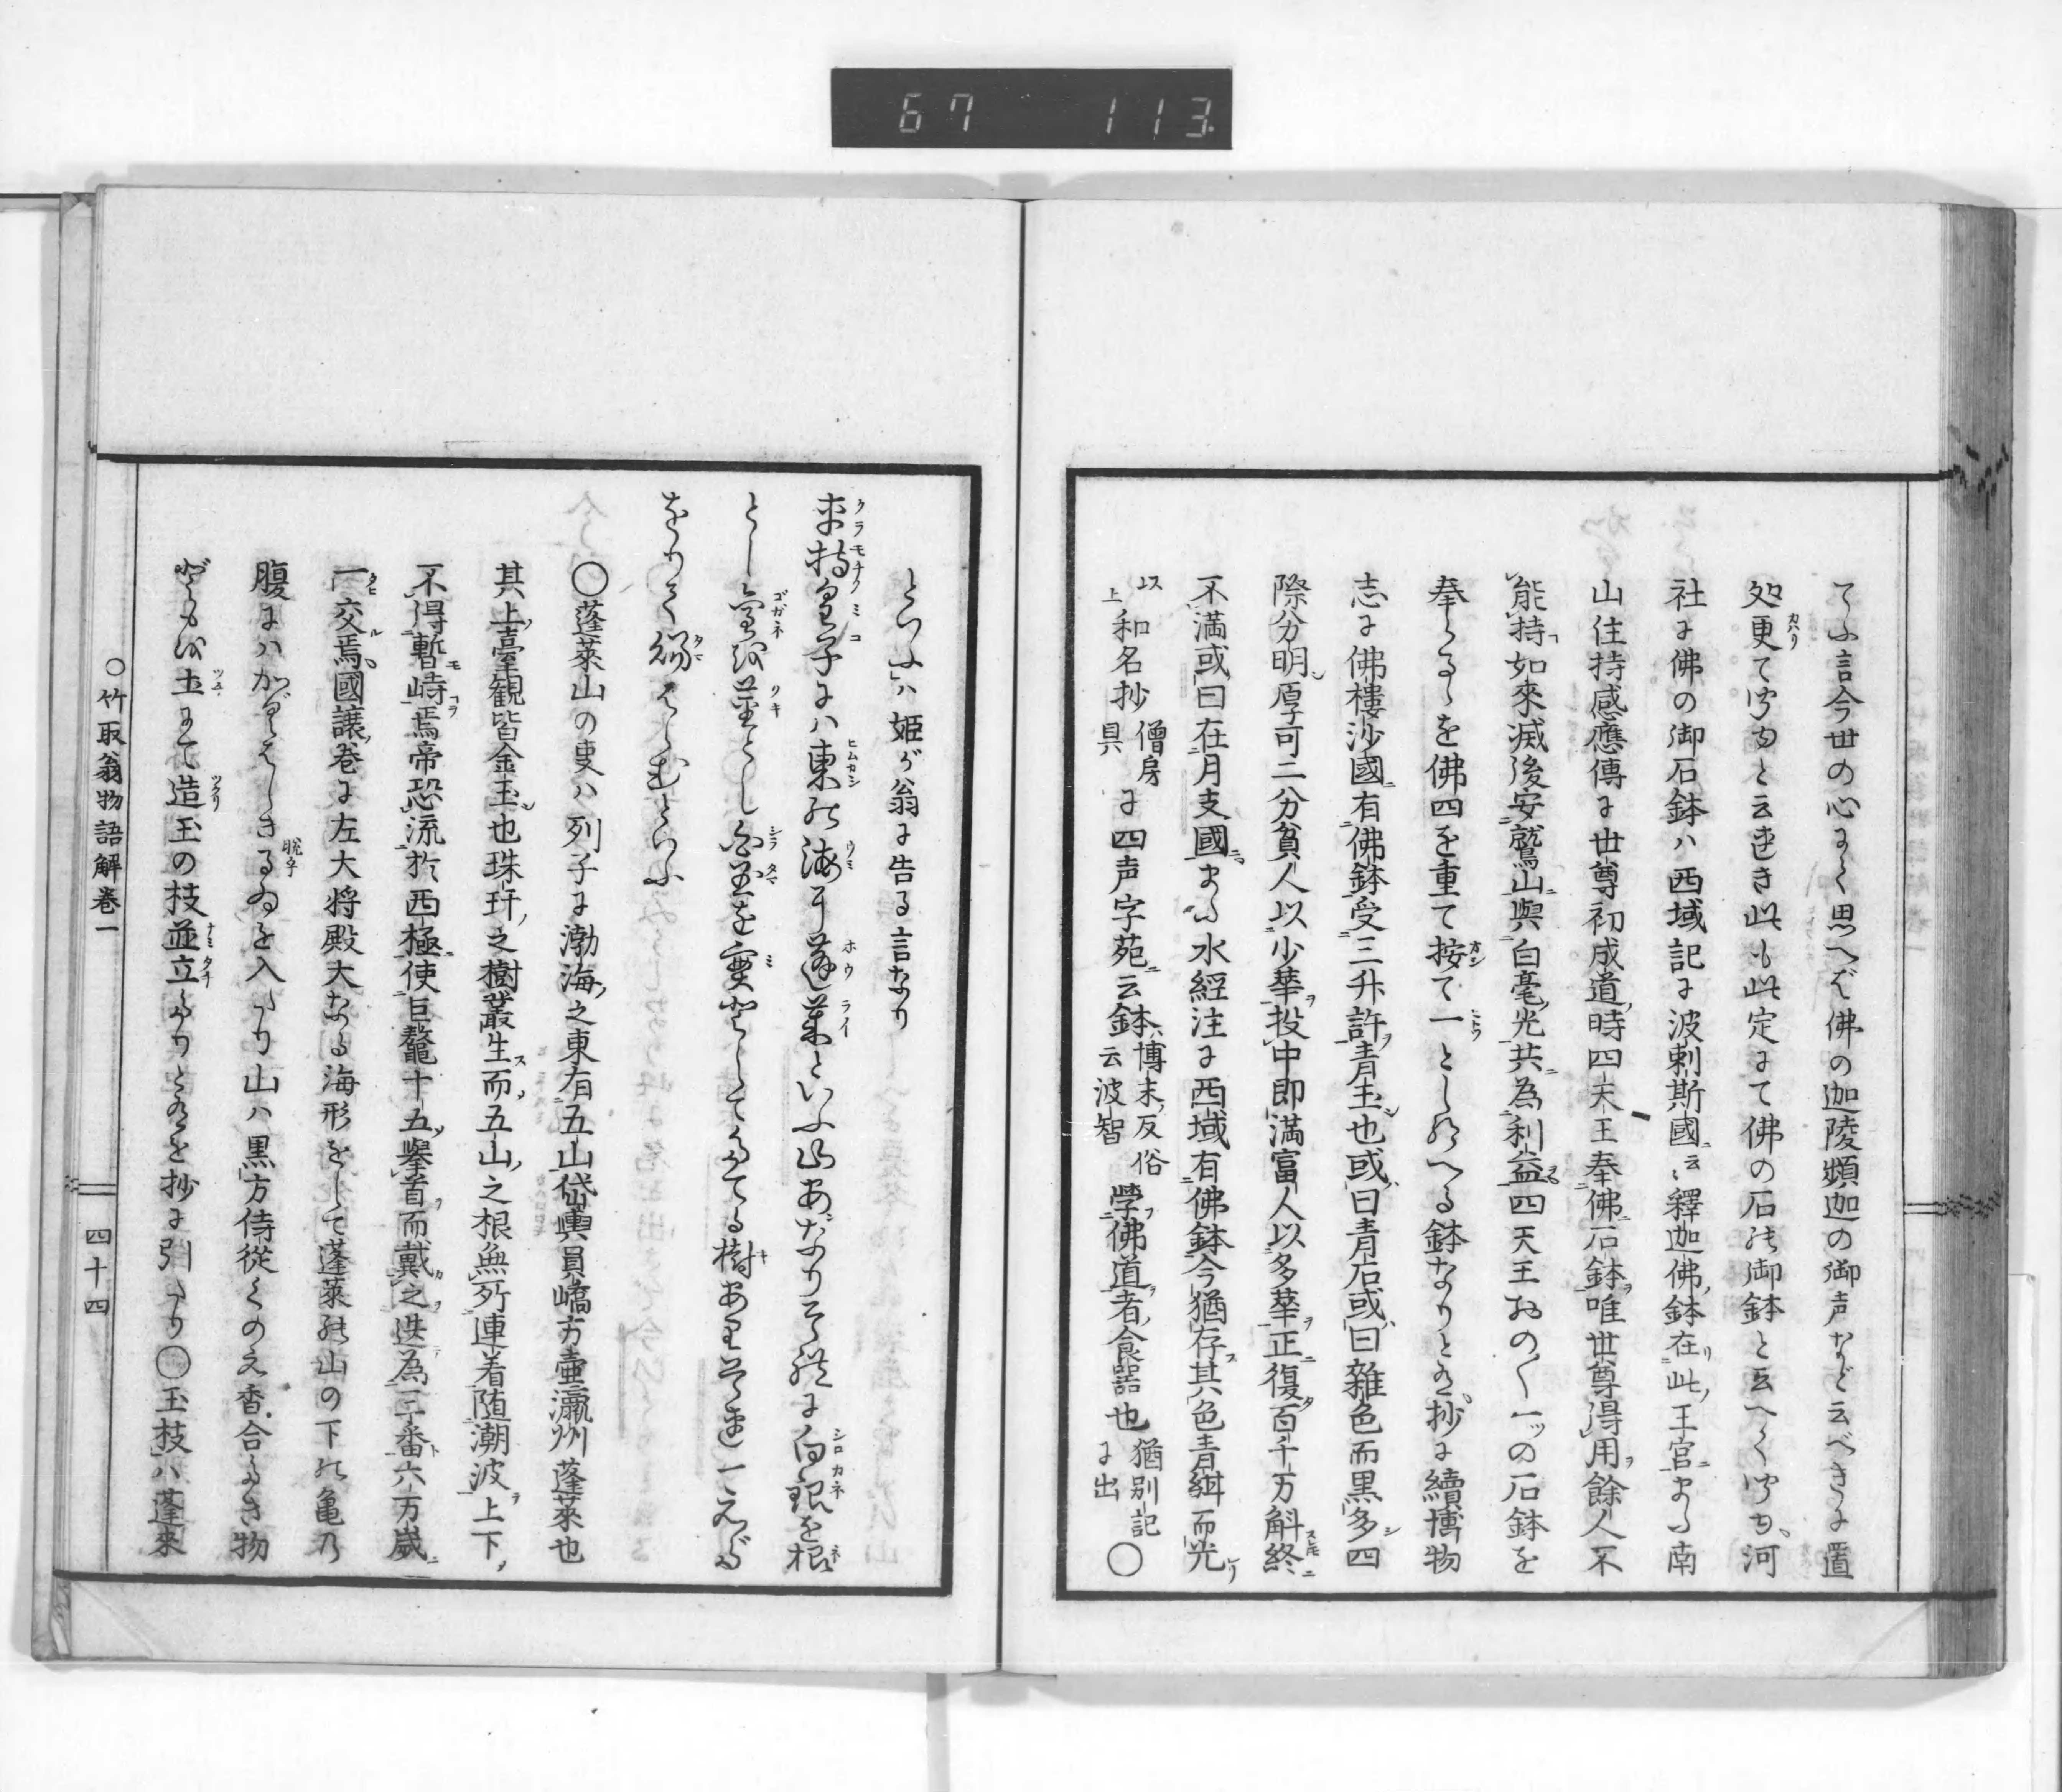 67 113
てふ言今世の心よく思へバ佛の伽陵頻伽の御声など云べきに置
処更て字也と云述き此も此定にて佛の石の御鉢と云へく字也河
社に佛の御石鉢ハ西域記に波剌斯國ニ云々釋迦佛ノ鉢在リ此ノ王宮ニまた南
山住持感應傳に世尊初成道ノ時四天王奉佛ニ石鉢ヲ唯世尊得用ヲ餘人不
能持コ如來滅後安鷲山ニ與白毫ノ光共ニ為利益四天王おの〱一ッの石鉢を
奉らるゝを佛四を重て按て一としたまへる鉢なりとぞ抄に續博物
志に佛樓沙國ニ有佛鉢受三升許ヲ青玉シ也或ハ曰青石或ハ曰雜色而黒多シ四
際分明シ厚可二分貧人以少華ヲ投中即満富人以多華ヲ正ニ復タ百千万斛終ニ
不満或曰在月支國ニまた水經注に西域ニ有佛鉢今猶存ス其色青紺而光リ
以上 和名抄 僧房具 に四声字苑ニ云鉢ハ博末ノ反俗云波智 學フ佛道ヲ者ノ食噐也 猶別記に出 ◯
といふハ姫が翁に告る言なり
車持皇子にハ東の海に蓬萊といふ山あなりそれに白銀を根
とし金を莖とし白玉を實としてたてる樹ありそれ一えだ
をりて給はらむといふ
◯蓬萊山の事ハ列子に渤海ノ之東有五山岱輿員嶠方壷瀛州蓬萊也
其上ノ臺觀皆金玉シ也珠玕ノ之樹叢生ス而ノ五山ノ之根無所連着随潮波ヲ上下ノ
不得暫モ峙コラ焉帝恐流於西極ニ使巨鼇十五ヲ擧首ヲ而戴カ之ヲ迭為三番ト六万歳ニ
一タヒ交ル焉國譲ノ巻に左大将殿大なる海形をして蓬萊の山の下の亀の
腹にハかぐはしきるゐを入たり山ハ黒方侍從くのえ香合たき物
どもを土にて造玉の枝並立たりとあるを抄に引たり◯玉枝ハ蓬來
◯竹取翁物語解巻一
四十四